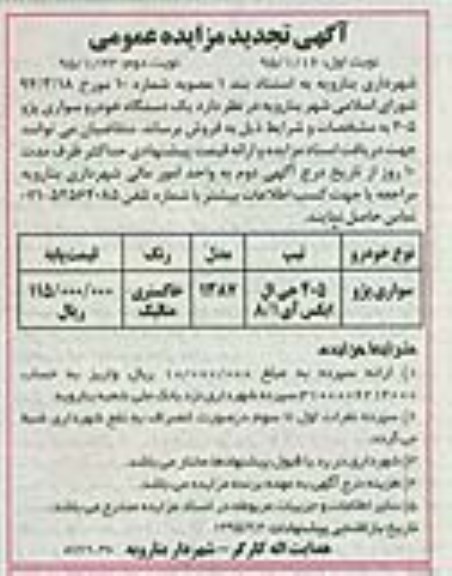 آگهی تجدید مزایده عمومی
نوبت اول: ۹۵/۱/۱۶ نوبت دوم: ۹۵/۱/۲۳
شهرداری بنارویه به استناد بند ۱ مصوبه شماره ۱۰ مورخ ۹۴/۳/۱۸
شورای اسلامی شهر بنارویه در نظر دارد یک دستگاه خودرو سواری پژو
۴۰۵ به مشخصات و شرایط ذیل به فروش برساند. متقاضیان می توانند
جهت دریافت اسناد مزایده و ارائه قیمت پیشنهادی حداکثر ظرف مدت
۱۰ روز از تاریخ درج آگهی دوم به واحد امور مالی شهرداری بنارویه
مراجعه یا جهت کسب اطلاعات بیشتر با شماره تلفن
تماس حاصل نمایند.
نوع خودرو تیپ مدل رنگ قیمت پایه
سواری پژو ۴۰۵ جی ال ایکس آی ۱/۸ ۱۳۸۷ خاکستری متالیک ۱۱۵/۰۰۰/۰۰۰ ریال
شرایط مزایده:
۱) ارائه سپرده به مبلغ ۱۰/۰۰۰/۰۰۰ ریال واریز به حساب
سپرده شهرداری نزد بانک ملی شعبه بنارویه
۲) سپرده نفرات اول تا سوم در صورت انصراف به نفع شهرداری ضبط
می گردد.
۳) شهرداری در رد یا قبول پیشنهادها مختار می باشد.
۴) هزینه درج آگهی به عهده برنده مزایده می باشد.
۵) سایر اطلاعات و جزییات مربوطه در اسناد مزایده مندرج می باشد.
تاریخ بازگشایی پیشنهادات:
هدایت اله کارگر - شهردار بنارویه